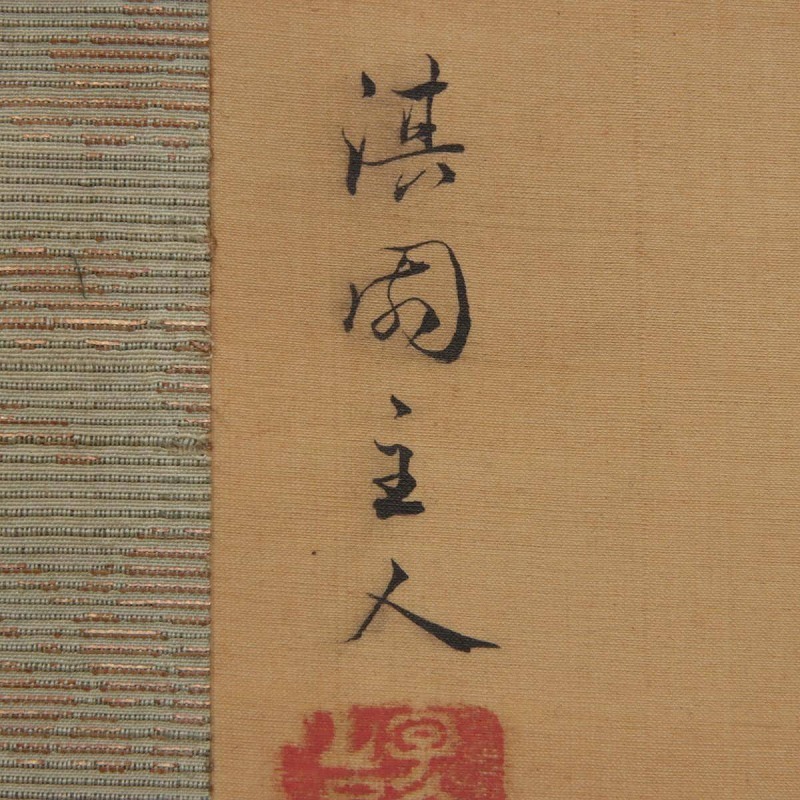 淇園主人